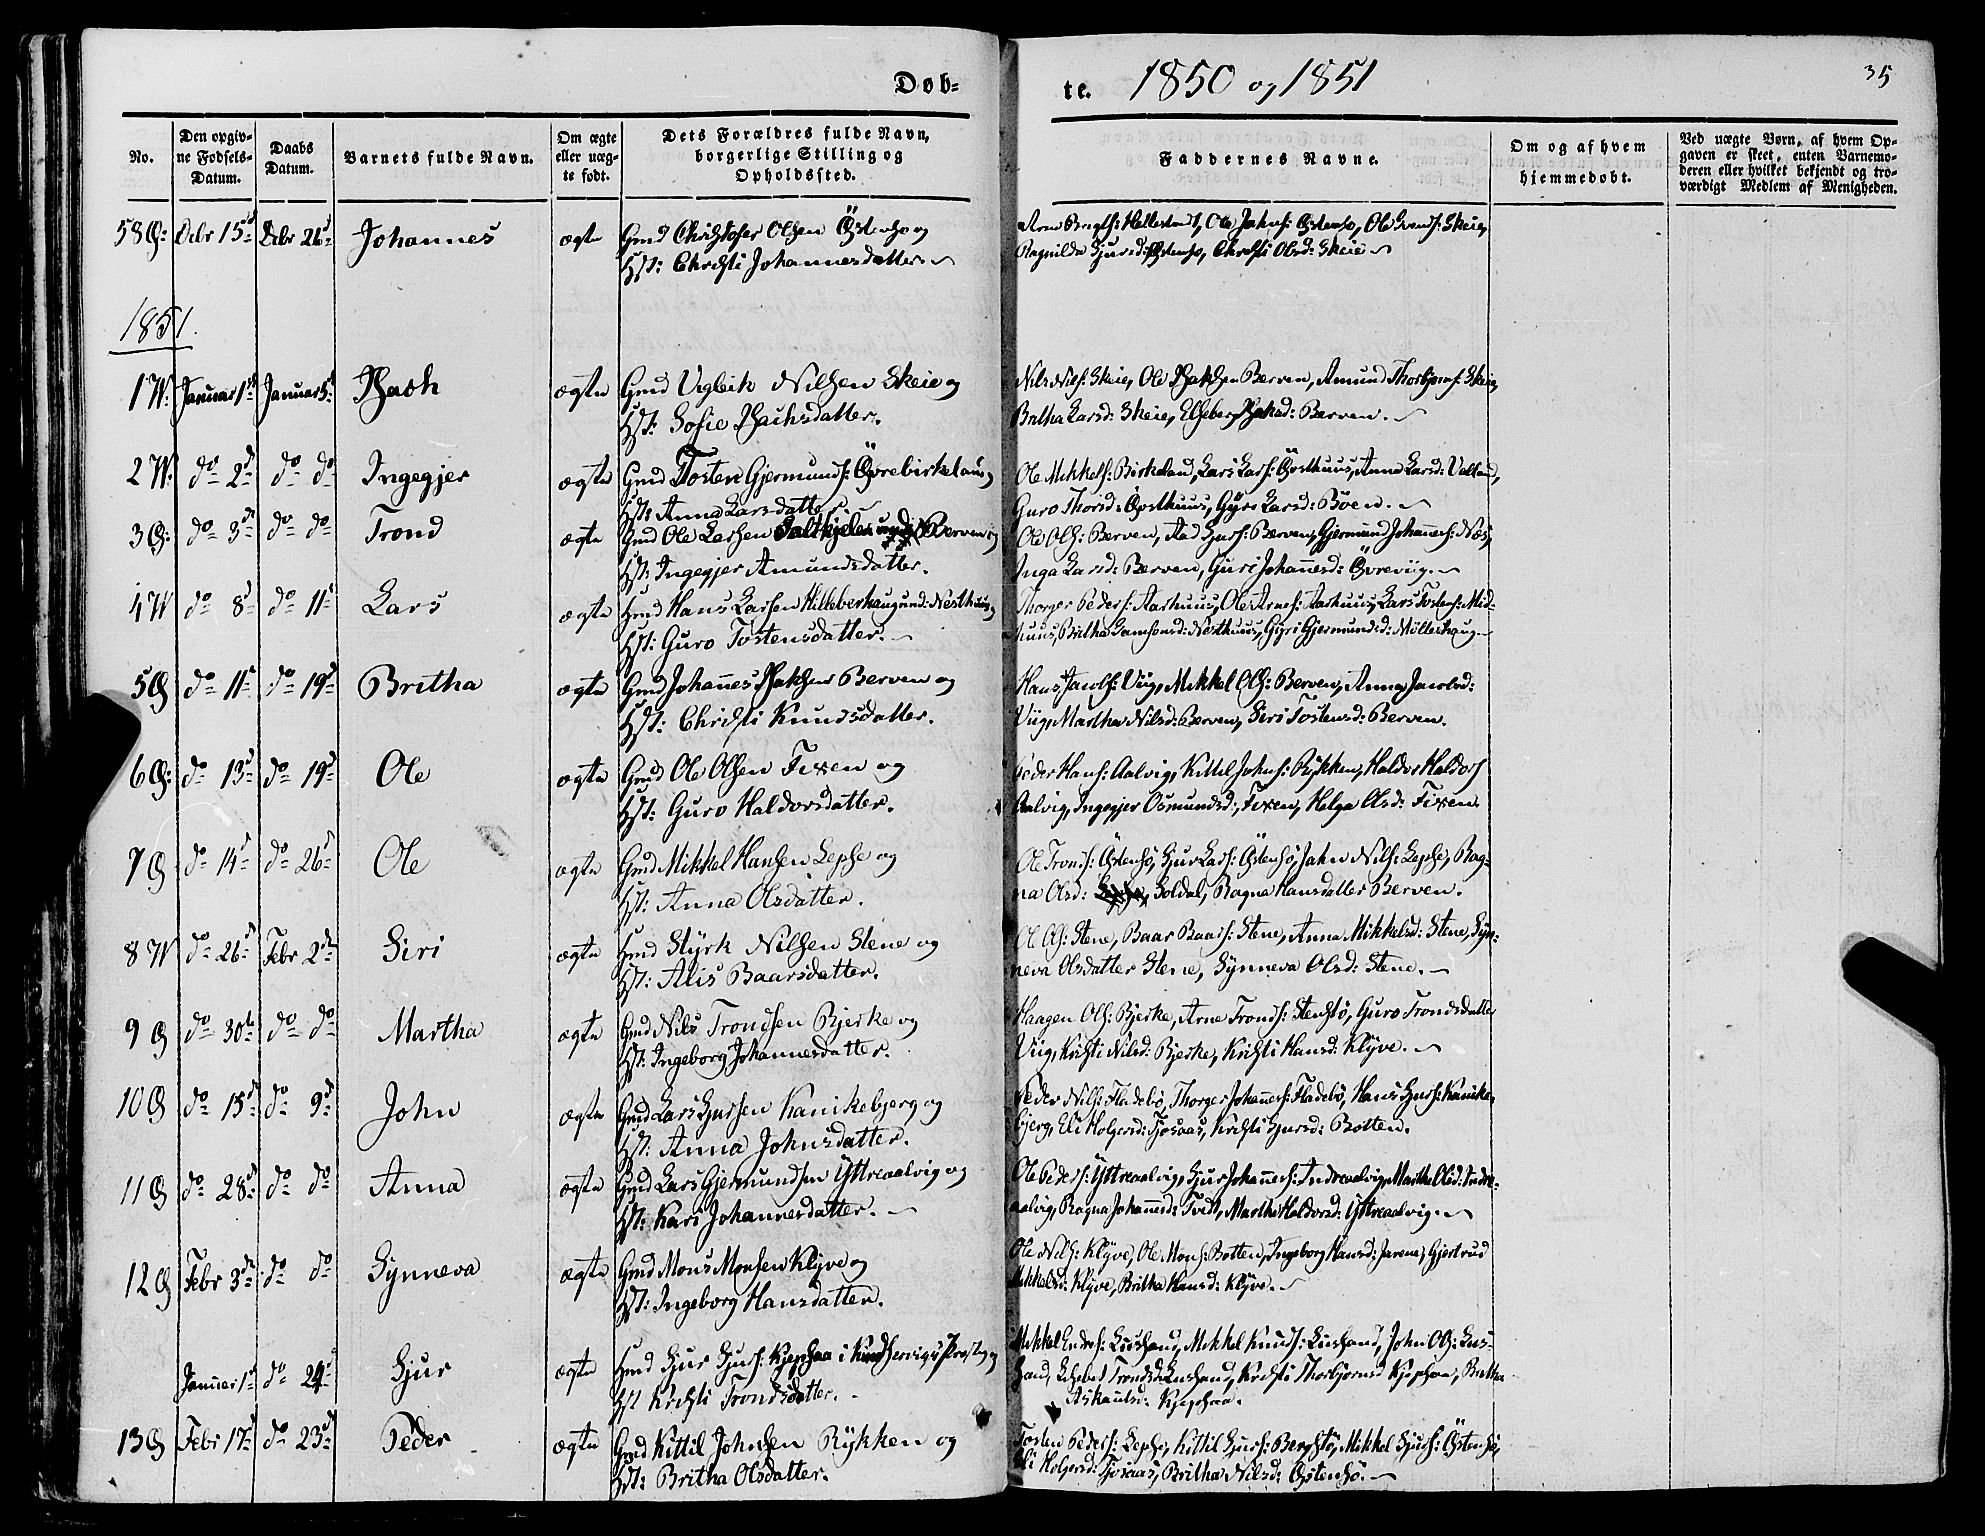 Døb-
te. 1850 og 1851
35
No.
Den opgiv-
ne Fødsels-
Datum.
Daabs
Datum.
Barnets fulde Navn.
Om ægte
eller uæg-
te født.
Dets Forældres fulde Navn,
borgerlige Stilling og
Opholdssted.
Faddernes Navne.
Om og af hvem
hjemmedøbt.
Ved uægte Børn, af hvem Op-
gaven er skeet, enten Barnemo-
deren eller hvilket bekjendt og tro-
værdigt Medlem af Menigheden.
58 Decbr 15de Decbr 26de Johannes ægte Gmd Christofer Olsen Östensø og
Hst: Christi Johannesdatter.
Olesen Johns: Östensø, Ole Svends: Skeie,
Ragnilda Sjursd: Östensø, Christi Olsd: Skeie
1851
1 Januar 1ste Januar 5te ægte Gmd Vigleik Nilsen Skeie og
Hst: Sofie
Nils Nils: Skeie, Ole Berven, Amund Thorbjørns: Skeie,
Britha Larsd: Skeie, Berven.
2 do 2de do do Ingegjer ægte Gmd Tosten Gjermunds: Övrebirkeland og
Hst: Anna Larsdatter.
Ole Mikkels: Birkeland, Lars Lars: Östhuus, Anna Larsd: Valland,
Guro Thorsd: Östhuus, Gyri Larsd: Böen.
3 do 3de do do Trond ægte Gmd Ole Larsen Berven og
Hst: Ingegjer Amundsdatter.
Ole Ols: Berven, Aad Sjurs: Berven, Gjermund Johannes: Næs,
Inga Larsd: Berven, Guri Johannesd: Övreviig.
4 do 8de do 11te Lars ægte Hmd Hans Larsen Hilleberhaug und: Nesthuus og
Hst: Guro Tostensdatter.
Thorger Peders: Aarhuus, Ole Arnes: Aarhuus, Lars Tostens: Mid-
huus, Britha Samsonsd: Nesthuus, Gyri Gjermundsd: Möllerhaug
5 do 11te do 19de Britha ægte Gmd Johannes Berven og
Hst: Christi Knudsdatter.
Hans Jacobs: Viig, Mikkel Ols: Berven, Anna Jacobsd:
Viig, Martha Nilsd: Berven, Siri Tostensd: Berven.
6 do 13de do 19de Ole ægte Gmd Ole Olsen Fixen og
Hst: Guro Haldorsdatter.
Peder Hans: Aalvig, Kittel Johns: Rykken, Haldor Haldors
Aalvig, Ingegjer Osmundsd: Fixen, Helga Olsd: Fixen.
7 do 14de do 26de Ole ægte Gmd Mikkel Hansen Lepsø og
Hst: Anna Olsdatter.
Ole Tronds: Östensö, Sjur Lars: Östensö, John Nils: Lepsø, Rag-
na Olsd: Soldal, Ragna Hansdatter Berven.
8 do 26de Febr 2den Siri ægte Gmd Styrk Nilsen Stene og
Hst: Alis Baarsdatter.
Ole Ols: Stene, Baar Baars: Stene, Anna Mikkelsd: Stene, Syn-
neva Olsdatter Stene, Synneva Olsd: Stene.
9 do 30te do do Martha ægte Gmd Nils Trondsen Bjerke og
Hst: Ingeborg Johannesdatter.
Haagen Ols: Bjerke, Arne Tronds: Stensö, Guro Trondsdatter
Viig, Kristi Nilsd: Bjerke, Kristi Hansd: Klyve.
10 do 15de do 9de John ægte Gmd Lars Sjursen Kanikebjerg og
Hst: Anna Johnsdatter.
Peder Nils: Fladebö, Thorger Johannes: Fladebö, Hans Sjurs: Kanike-
bjerg, Eli Holgersd: Tjosaas, Kristi Sjursd: Botten.
11 do 28de do do Anna ægte Gmd Lars Gjermundsen Yttreaalvig og
Hst: Kari Johannesdatter.
Ole Peders: Yttreaalvig, Sjur Johannes: Indreaalvig, Martha Olsd: Indre-
aalvig, Ragna Johannesd: Tvedt, Martha Haldorsd: Yttreaalvig.
12 Febr 3de do do Synneva ægte Gmd Mons Monsen Klyve og
Hst: Ingeborg Hansdatter.
Ole Nils: Klyve, Ole Mons: Botten, Ingeborg Hansd: Gjertrud
Mikkelsd: Klyve, Britha Hansd: Klyve.
Januar 1ste do 24de Sjur ægte Hmd Sjur Sjurs: i
Hst Kristi Trondsdatter.
Mikkel Endres: Mikkel Knuds: John Ols:
Trondsd: Kristi Thorbjørnsd Britha
Askautsd:
13 Febr 17de do 23de Peder ægte Gmd Kittil Johnsen Rykken og
Hst: Britha Olsdatter.
Tosten Peders: Lepsø, Kittil Sjurs: Bergstö, Mikkel Sjurs: Östensö,
Eli Holgersd: Tjosaas, Britha Nilsd: Östensö.